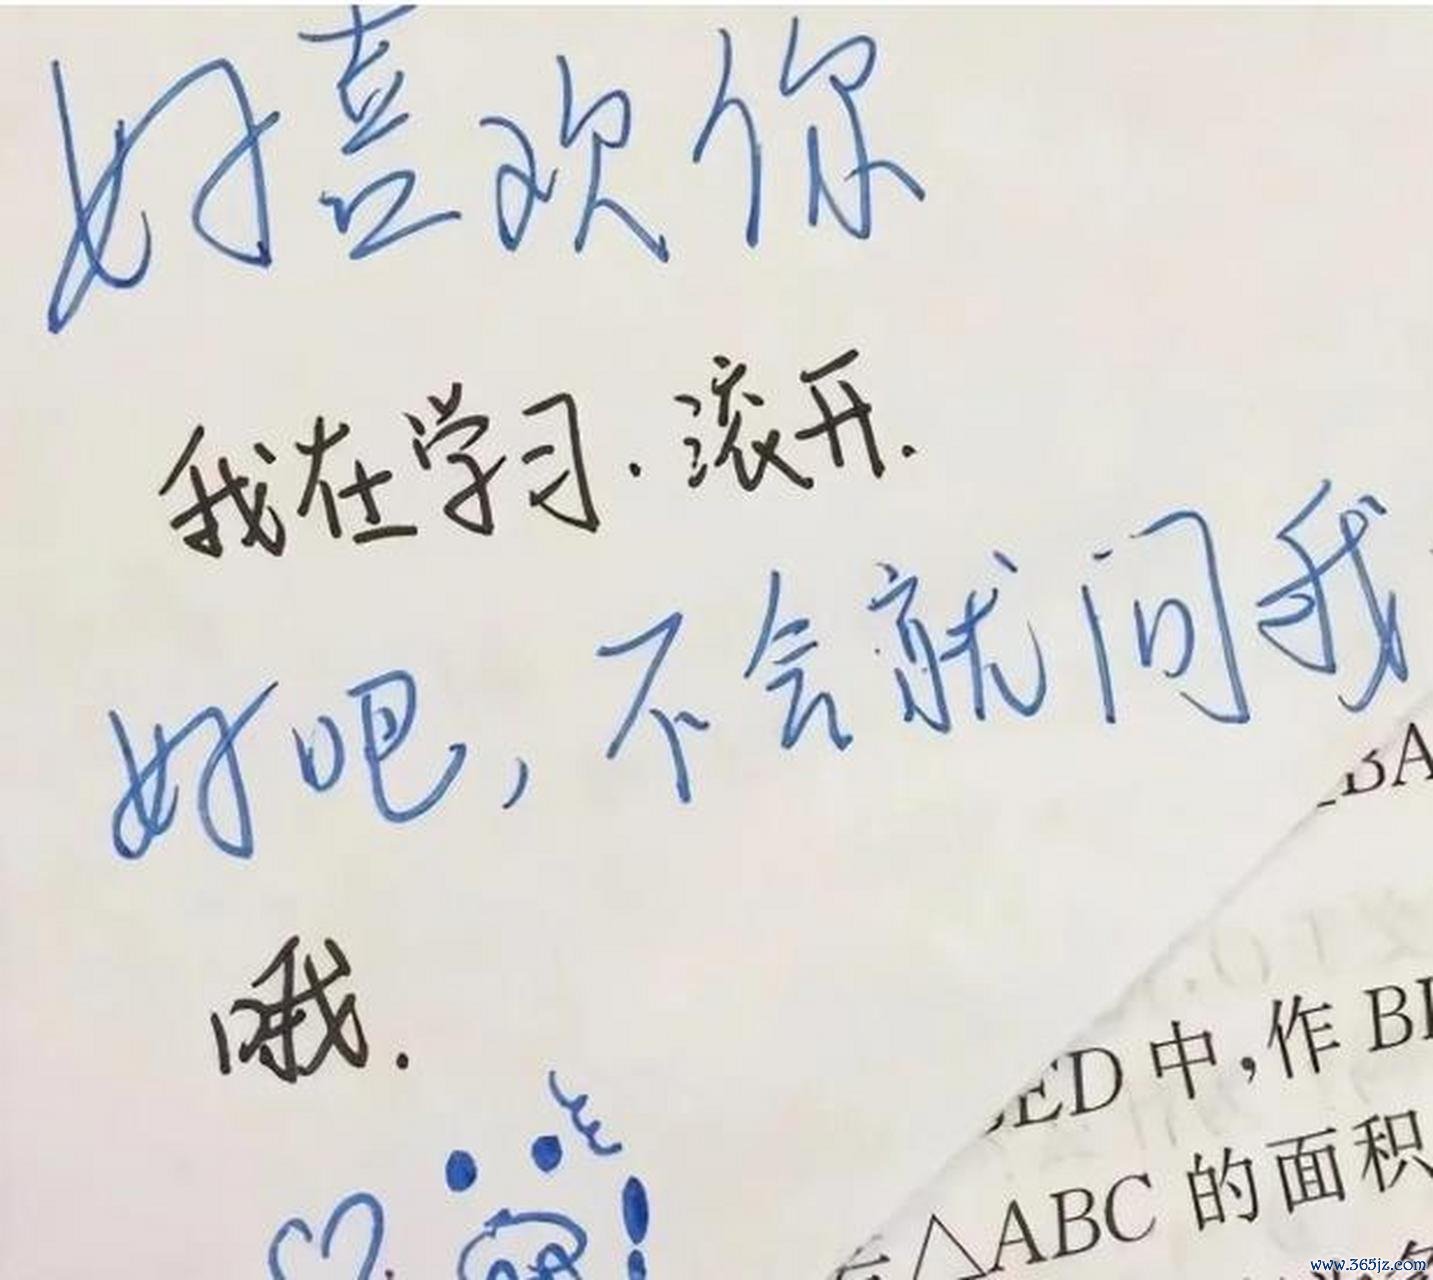 好喜欢你
我在学习.滚开.
好吧,不会就问我
哦.
BA
ED 中,作 B
△ABC 的面积
www.365jz.com